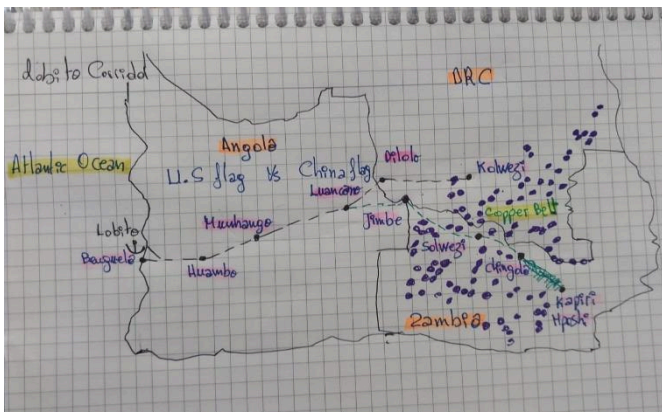 Lobito Corridd
DRC
Atlantic Ocean
Angola
U.S flag Vs China flag
Dilolo
Kolwezi
Luancano
Jimbe
Copper Belt
Muuhango
Lobito
Solwezi
Benguela
Huambo
Chingola
Kapiri
Mposhi
Zambia